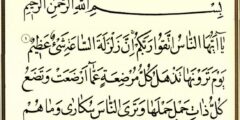 بِسْمِ اللَّهِ الرَّحْمَنِ الرَّحِيمِ
يَا أَيُّهَا النَّاسُ اتَّقُوا رَبَّكُمْ إِنَّ زَلْزَلَةَ السَّاعَةِ شَيْءٌ عَظِيمٌ ١
يَوْمَ تَرَوْنَهَا تَذْهَلُ كُلُّ مُرْضِعَةٍ عَمَّا أَرْضَعَتْ وَتَضَعُ
كُلُّ ذَاتِ حَمْلٍ حَمْلَهَا وَتَرَى النَّاسَ سُكَارَى وَمَا هُمْ